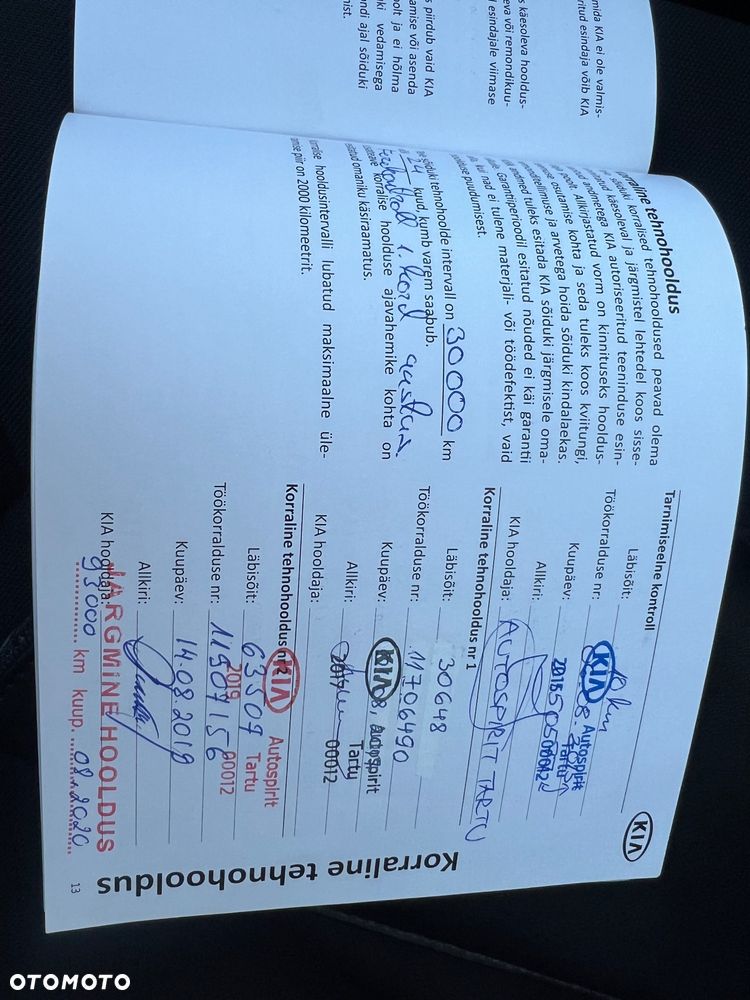 mida KIA ei ole valmis-
ritud esindaja võib KIA
s käesoleva hooldus-
eva või remondikuu-
l esindajale viimase
s piirdub vaid KIA
amise või asenda
olt ja ei hõlma
ki vedamisega
ndi ajal sõiduki
mist.
Korraline tehnohooldus
13
KIA
raline tehnohooldus
sõiduki korralised tehnohooldused peavad olema
käesoleval ja järgmistel lehtedel koos sisse-
andmetega KIA autoriseeritud teeninduse esin-
poolt. Allkirjastatud vorm on kinnituseks hooldus-
osutamise kohta ja seda tuleks koos kviitungi,
tellimuse ja arvetega hoida sõiduki kindalaekas.
andmed tuleks esitada KIA sõiduki järgmisele oma-
Garantiiperioodil esitatud nõuded ei käi garantii
kui nad ei tulene materjali- või töödefektist, vaid
hoolduse puudumisest.
sõiduki tehnohoolde intervall on 30000 km
24 kuud, kumb varem saabub.
1. kord aastas.
korralise hoolduse ajavahemike kohta on
omaniku käsiraamatus.
hooldusintervalli lubatud maksimaalne üle-
piir on 2000 kilomeetrit.
Tarnimiseelne kontroll
Läbisõit: 10 km
Töökorralduse nr:
Kuupäev:
Allkiri:
KIA hooldaja: AUTOSPIRIT TARTU
KIA Autospirit
Tartu
2015
Korraline tehnohooldus nr 1
Läbisõit: 30648
Töökorralduse nr: 11706490
Kuupäev:
Allkiri:
KIA hooldaja:
KIA Autospirit
Tartu
2017 00012
Korraline tehnohooldus nr 2
Läbisõit: 63507
Töökorralduse nr: 11907156
Kuupäev: 14.08.2019
Allkiri:
KIA hooldaja:
KIA Autospirit
Tartu
2019 00012
JÄRGMINE HOOLDUS
93000 km kuup. 08.2020
OTOMOTO